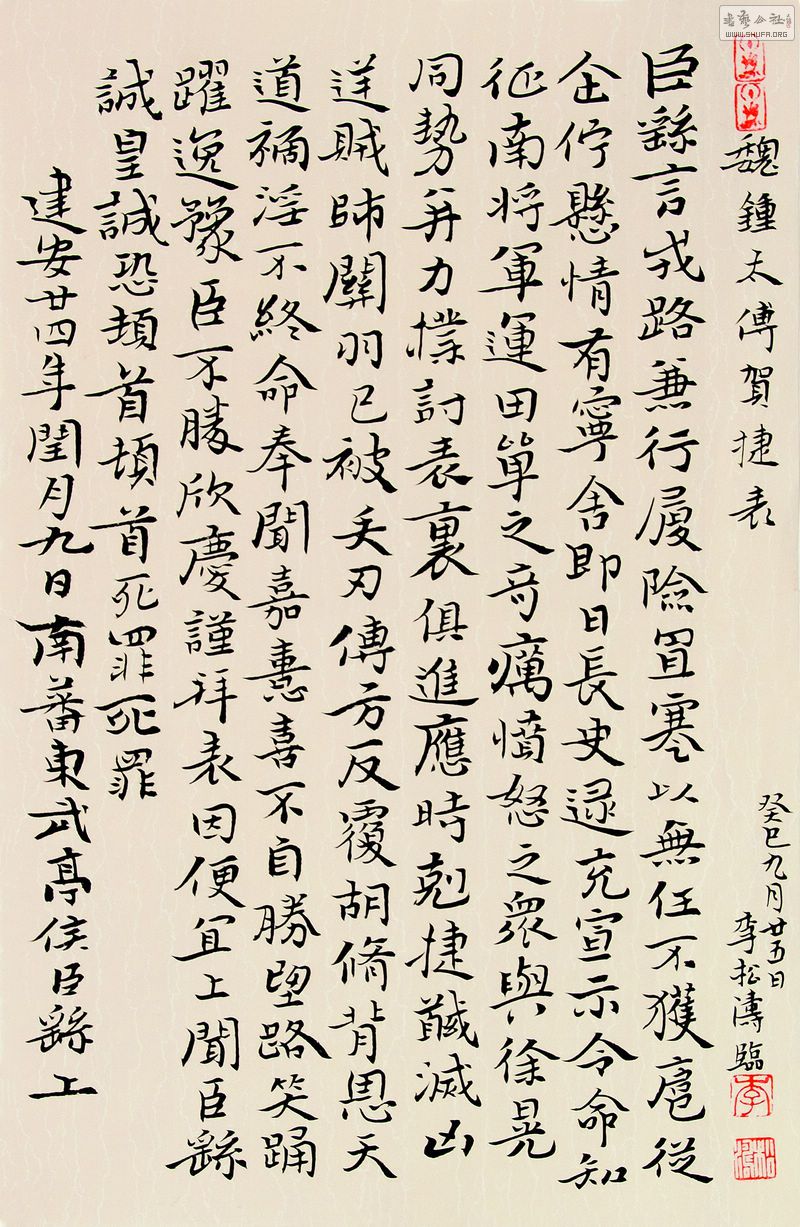 魏鍾太傅賀捷表
臣繇言戎路兼行履險冒寒以無任不獲扈從
企佇懸情有寧舍即日長史逯充宣示令命知
征南將軍運田單之奇厲憤怒之衆與徐晃
同勢并力撲討表裏俱進應時剋捷馘滅凶
逆賊帥關羽已被矢刃傅方反覆胡脩背恩天
道禍淫不終命奉聞嘉憙喜不自勝望路笑踊
躍逸豫臣不勝欣慶謹拜表因便宜上聞臣繇
誠皇誠恐頓首頓首死罪死罪
建安廿四年閏月九日南蕃東武亭侯臣繇上
癸巳九月廿五日
李松濤臨
李
書藝公社
WWW.SHUFA.ORG